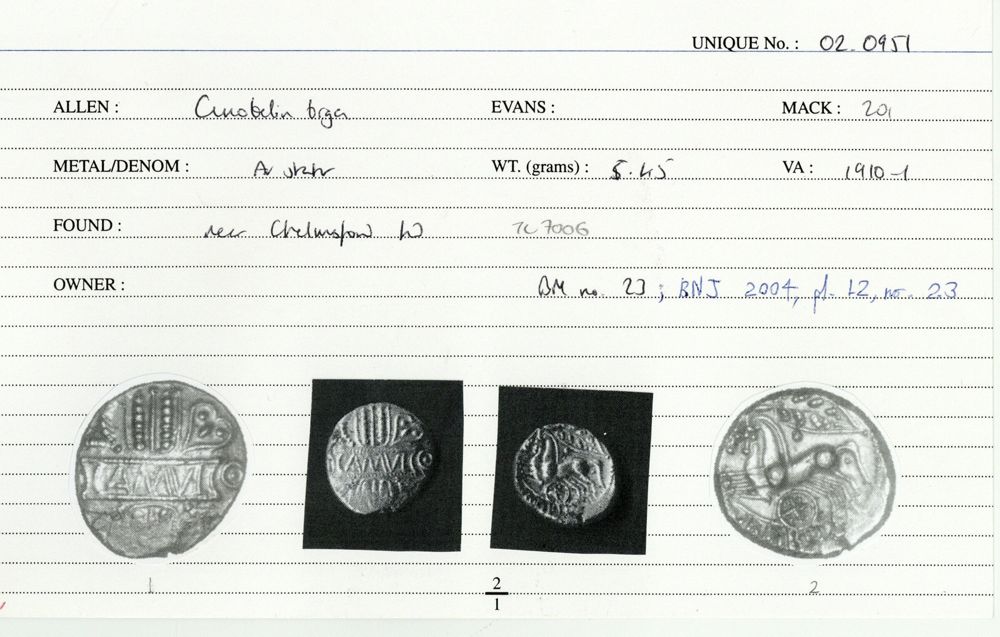 UNIQUE No. : 02.0951
ALLEN : Cunobelin biga EVANS : MACK : 201
METAL/DENOM : AV stater WT. (grams) : 5.45 VA : 1910-1
FOUND : near Chelmsford TC 7006
OWNER : BM no. 23; BNJ 2004, pl. 12, no. 23
CAMVL
CAMVL
1 2/1 2